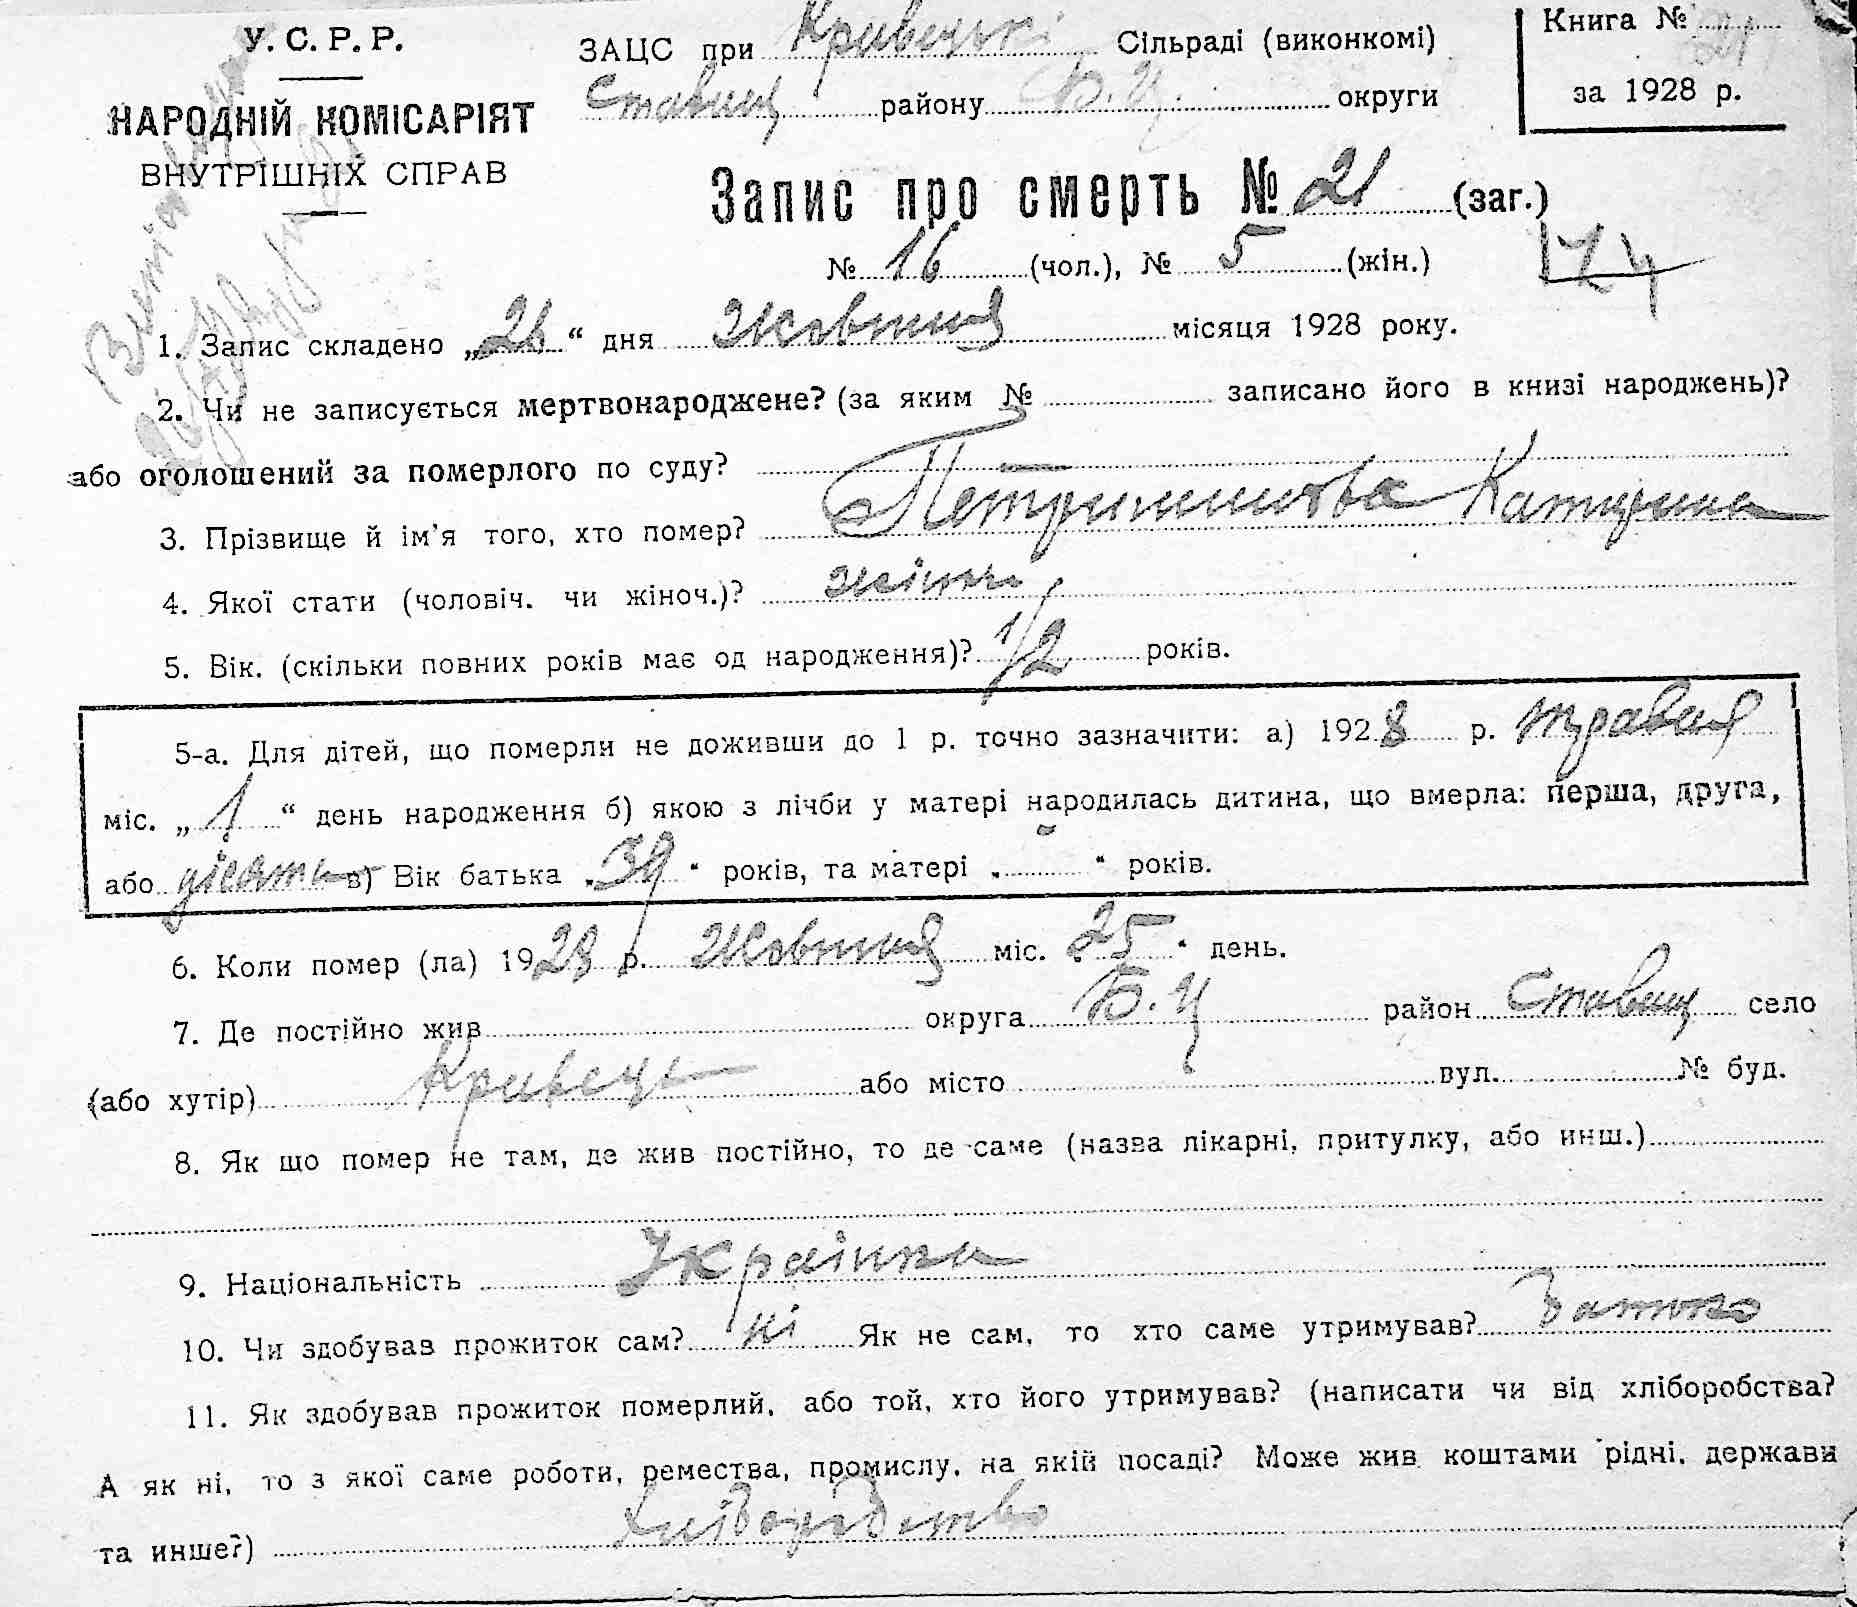 У. С. Р. Р.
НАРОДНІЙ КОМІСАРІЯТ
ВНУТРІШНІХ СПРАВ
ЗАЦС при Кривецькі Сільраді (виконкомі)
Ставищ району Б. Ц. округи
Книга №
за 1928 р.
Запис про смерть № 21 (заг.)
№ 16 (чол.), № 5 (жін.)
174
1. Запис складено „26“ дня Жовтня місяця 1928 року.
2. Чи не записується мертвонароджене? (за яким № записано його в книзі народжень)?
або оголошений за померлого по суду?
3. Прізвище й ім'я того, хто помер? Катерина
4. Якої стати (чоловіч. чи жіноч.)? жіноч
5. Вік. (скільки повних років має од народження)? 1/2 років.
5-а. Для дітей, що померли не доживши до 1 р. точно зазначити: а) 1928 р. травня
міс. „1“ день народження б) якою з лічби у матері народилась дитина, що вмерла: перша, друга,
або десята в) Вік батька „39“ років, та матері „ “ років.
6. Коли помер (ла) 1928 р. Жовтня міс. „25“ день.
7. Де постійно жив округа Б. Ц район Ставищ село
(або хутір) Кривець або місто вул. № буд.
8. Як що помер не там, де жив постійно, то де саме (назва лікарні, притулку, або инш.)
9. Національність Українка
10. Чи здобував прожиток сам? ні Як не сам, то хто саме утримував? Батько
11. Як здобував прожиток померлий, або той, хто його утримував? (написати чи від хліборобства?
А як ні, то з якої саме роботи, ремества, промислу, на якій посаді? Може жив коштами рідні, держави
та инше?) Хліборобство